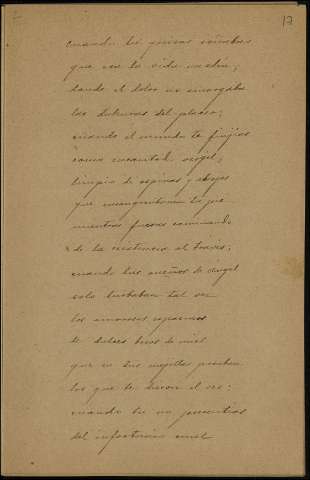 17
cuando tú
que en la vida
cuando el dolor no amargaba
las dulzuras del placer;
cuando el mundo te fingías
como encantado vergel,
limpio de espinas y abrojos
que ensangrentaran tu pié
mientras fueras caminando
de la existencia al través;
cuando tus sueños de ángel
solo turbaban tal vez
los amorosos
de dulces besos de miel
que en tus mejillas
los que te dieron el ser;
cuando tú no presentías
del infortunio cruel